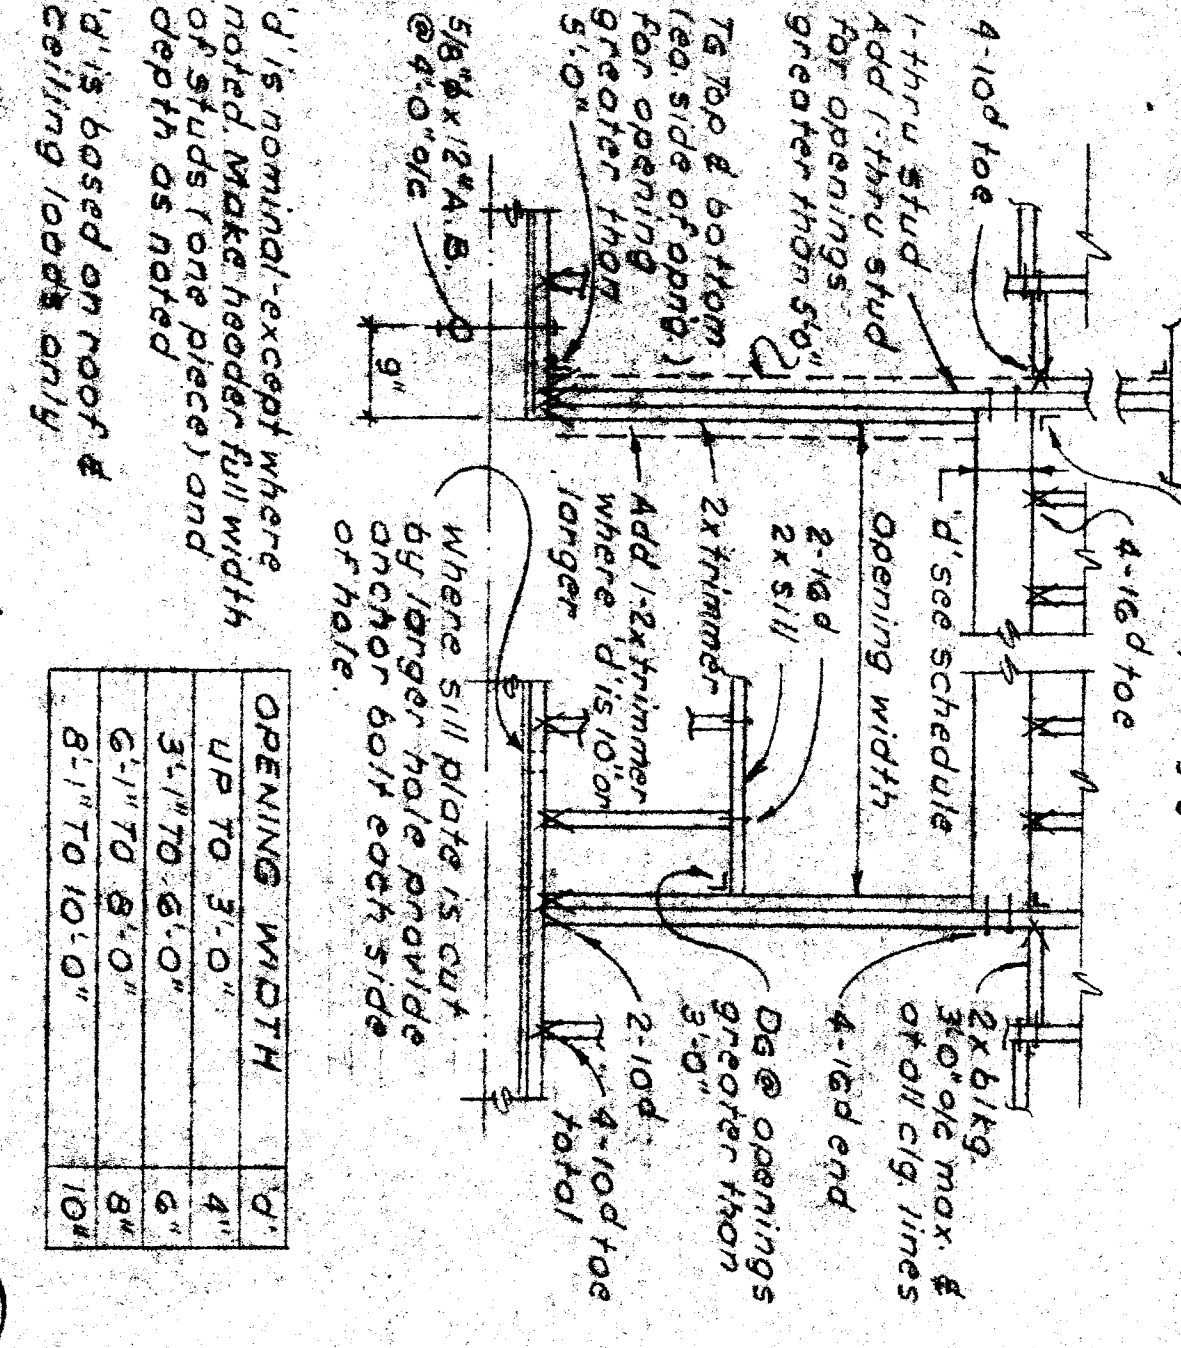 4-10d toe
1-thru stud
Add 1-thru stud
for openings
greater than 5'0"
TG Top & bottom
(ea. side of opng.)
for opening
greater than
5'-0"
5/8"ø x 12" A.B.
@ 4'-0" o/c
9"
4-16d toe
'd' see schedule
opening width
2-16d
2x sill
2x trimmer
Add 1-2x trimmer
where 'd' is 10" or
larger
where sill plate is cut
by larger hole provide
anchor bolt each side
of hole.
2x blkg.
3'0" o/c max. &
at all clg. lines
4-16d end
DG @ openings
greater than
3'-0"
2-10d
4-10d toe
total
'd' is nominal-except where
noted. Make header full width
of studs (one piece) and
depth as noted
'd' is based on roof &
ceiling loads only
OPENING WIDTH 'd'
UP TO 3'-0" 4"
3'-1" TO 6'-0" 6"
6'-1" TO 8'-0" 8"
8'-1" TO 10'-0" 10"